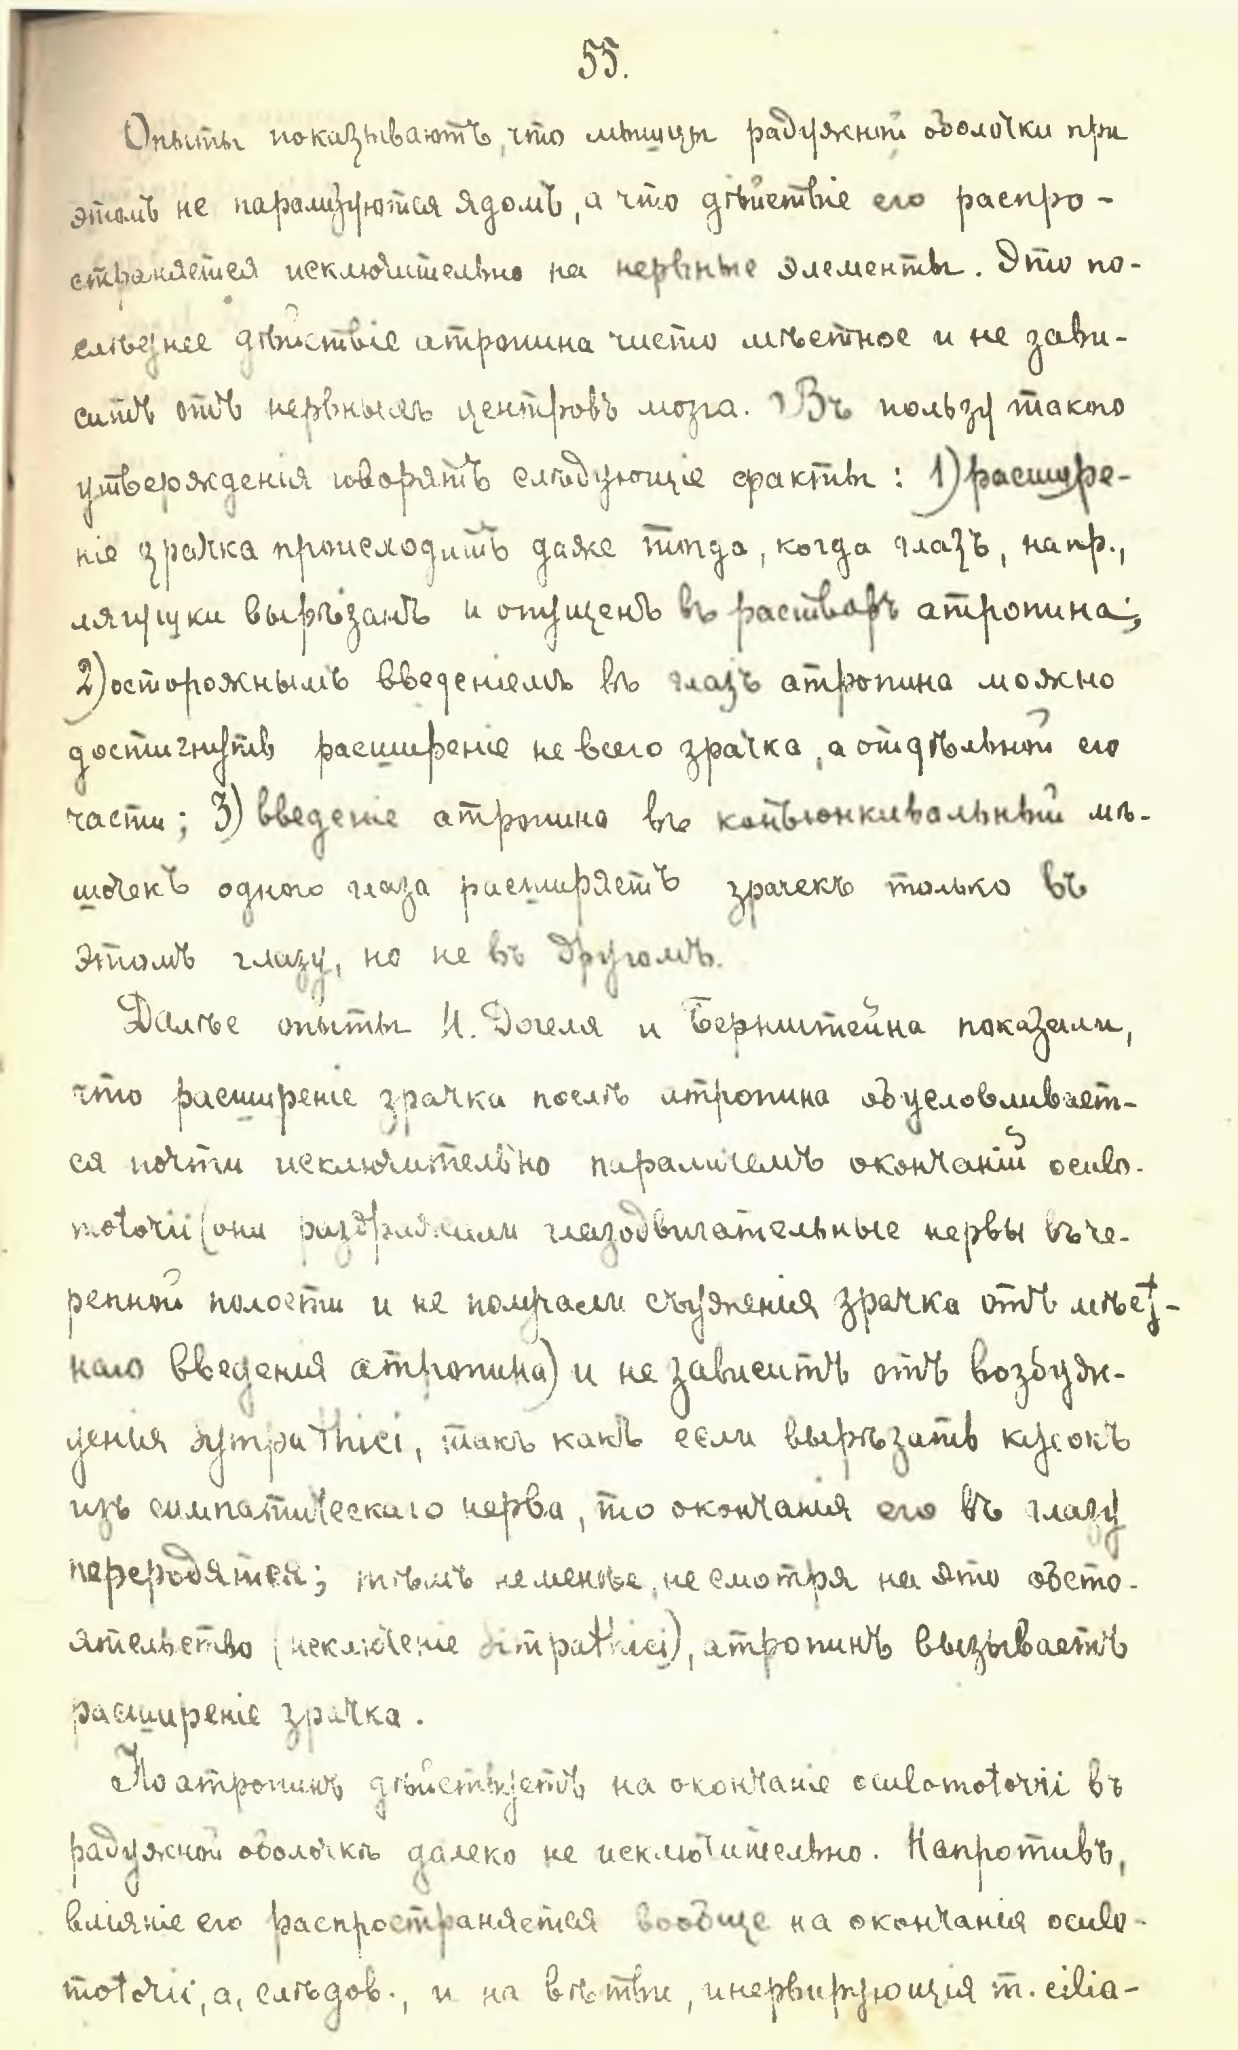 55.
Опыты показываютъ, что мышцы радужной оболочки при
этомъ не парализуются ядомъ, а что дѣйствіе его распро-
страняется исключительно на нервные элементы. Это по-
слѣднее дѣйствіе атропина чисто мѣстное и не зави-
ситъ отъ нервныхъ центровъ мозга. Въ пользу такого
утвержденія говорятъ слѣдующіе факты: 1) расшире-
ніе зрачка происходитъ даже тогда, когда глазъ, напр.,
лягушки вырѣзанъ и опущенъ въ растворъ атропина;
2) осторожнымъ введеніемъ въ глазъ атропина можно
достигнуть расширеніе не всего зрачка, а отдѣльной его
части; 3) введеніе атропина въ конъюнкивальный мѣ-
шечекъ одного глаза расширяетъ зрачекъ только въ
этомъ глазу, но не въ другомъ.
Далѣе опыты И. Догеля и Бернштейна показали,
что расширеніе зрачка послѣ атропина обусловливает-
ся почти исключительно параличемъ окончаній oculo-
motorii (они раздражали глазодвигательные нервы въ че-
репной полости и не получали съуженія зрачка отъ мѣст-
наго введенія атропина) и не зависитъ отъ возбуж-
денія sympathici, такъ какъ если вырѣзать кусокъ
изъ симпатическаго нерва, то окончанія его въ глазу
переродятся; тѣмъ неменѣе, не смотря на это обсто-
ятельство (исключеніе simpathici), атропинъ вызываетъ
расширеніе зрачка.
Но атропинъ дѣйствуетъ на окончаніе oculomotorii въ
радужной оболочкѣ далеко не исключительно. Напротивъ,
вліяніе его распространяется вообще на окончанія oculo-
motorii, а, слѣдов., и на вѣтви, инервирующія m. cilia-